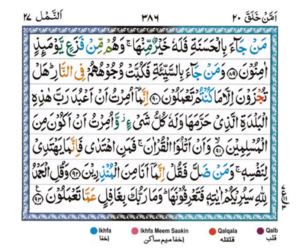 اَمَّنْ خَلَقَ ٢٠ ٣٨٦ اَلنَّمْل ٢٧
مَنْ جَآءَ بِالْحَسَنَةِ فَلَهٗ خَيْرٌ مِّنْهَا ۚ وَهُمْ مِّنْ فَزَعٍ يَّوْمَئِذٍ
اٰمِنُوْنَ ﴿٨٩﴾ وَمَنْ جَآءَ بِالسَّيِّئَةِ فَكُبَّتْ وُجُوْهُهُمْ فِى النَّارِ ؕ هَلْ
تُجْزَوْنَ اِلَّا مَا كُنْتُمْ تَعْمَلُوْنَ ﴿٩٠﴾ اِنَّمَآ اُمِرْتُ اَنْ اَعْبُدَ رَبَّ هٰذِهِ
الْبَلْدَةِ الَّذِىْ حَرَّمَهَا وَلَهٗ كُلُّ شَىْءٍ ۫ وَّاُمِرْتُ اَنْ اَكُوْنَ مِنَ
الْمُسْلِمِيْنَ ﴿٩١﴾ وَاَنْ اَتْلُوَا الْقُرْاٰنَ ۚ فَمَنِ اهْتَدٰى فَاِنَّمَا يَهْتَدِىْ
لِنَفْسِهٖ ۚ وَمَنْ ضَلَّ فَقُلْ اِنَّمَآ اَنَا مِنَ الْمُنْذِرِيْنَ ﴿٩٢﴾ وَقُلِ الْحَمْدُ
لِلّٰهِ سَيُرِيْكُمْ اٰيٰتِهٖ فَتَعْرِفُوْنَهَا ؕ وَمَا رَبُّكَ بِغَافِلٍ عَمَّا تَعْمَلُوْنَ ﴿٩٣﴾
Ikhfa Ikhfa Meem Saakin Qalqala Qalb
اخفا اخفا میم ساکن قلقله قلب